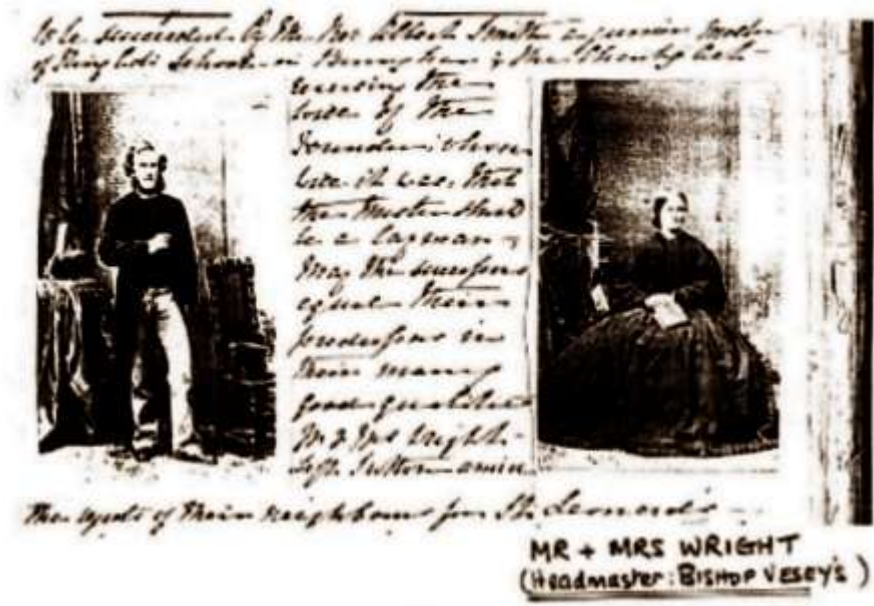 to be succeeded by the Rev Albert Smith a junior master
of King Ed's Schools in Birmingham & thus thereby
reversing the
law of the
Founder whose
law it was that
the Master shd
be a layman -
May the successors
equal their
predecessors in
their many
good qualities
Mr & Mrs Wright
left Sutton amid
the regrets of their neighbours for St Leonards -
MR + MRS WRIGHT
(Headmaster: BISHOP VESEY'S)